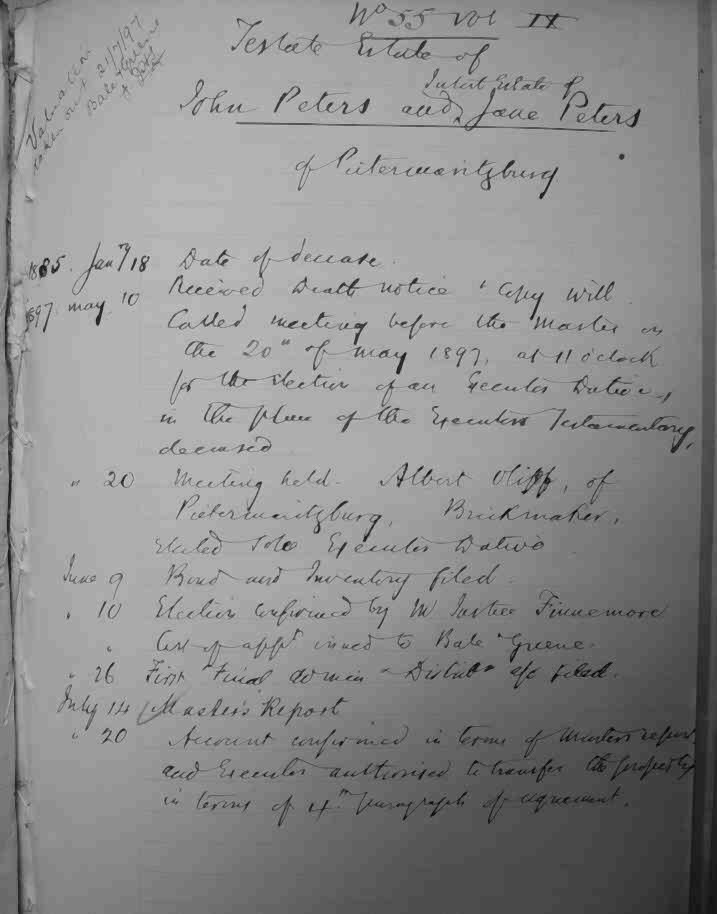 No 55 Vol II
Valuation
taken out 21/7/97
Bale Greene
Testate Estate of
Intest Estate of
John Peters and Jane Peters
of Pietermaritzburg
1885. Jany 18 Date of decease.
1897. May 10 Received Death notice & Copy will
Called meeting before the Master on
the 20th of May 1897, at 11 o'clock
for the election of an Executor Dative,
in the place of the Executors Testamentary,
deceased
" 20 Meeting held. Albert Oliff, of
Pietermaritzburg, Brickmaker,
elected Sole Executor Dative
June 9 Bond and Inventory filed.
" 10 Election confirmed by Mr Justice Finnemore
" Cert of appt issued to Bale & Greene.
" 26 First & Final admin & Distribn a/c filed.
July 14 Master's Report
" 20 Account confirmed in terms of Masters report
and Executor authorised to transfer the property
in terms of 4th paragraph of agreement.